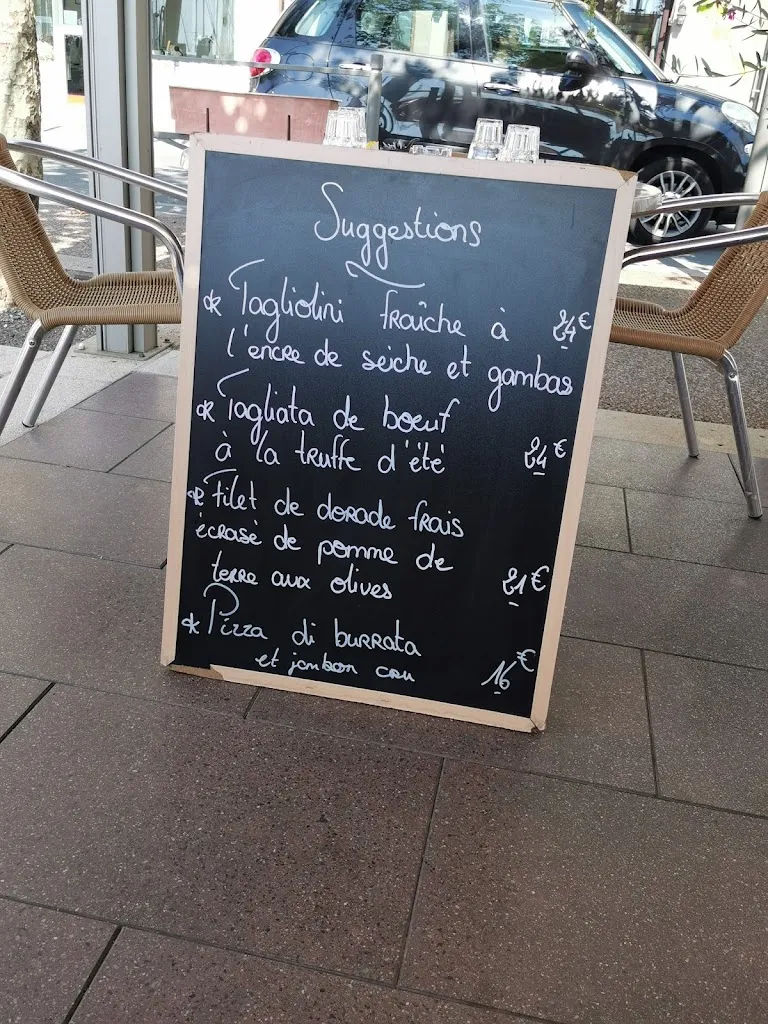 Suggestions
* Tagliolini fraîche à 24€
l'encre de seiche et gambas
* Tagliata de boeuf
à la truffe d'été 24€
* Filet de dorade frais
écrasé de pomme de
terre aux olives 21€
* Pizza di burrata
et jambon cru 16€